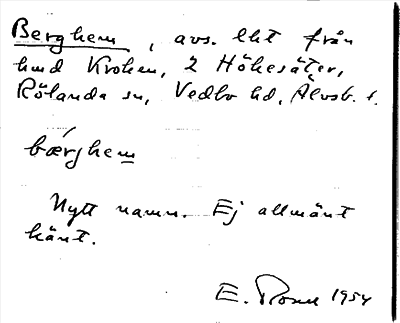 Berghem, avs. lht från
hmd Kroken, 2 Höhesäter,
Rölanda sn, Vedbo hd, Älvsb. l.
bærghem
Nytt namn. Ej allmänt
känt.
E. 1954